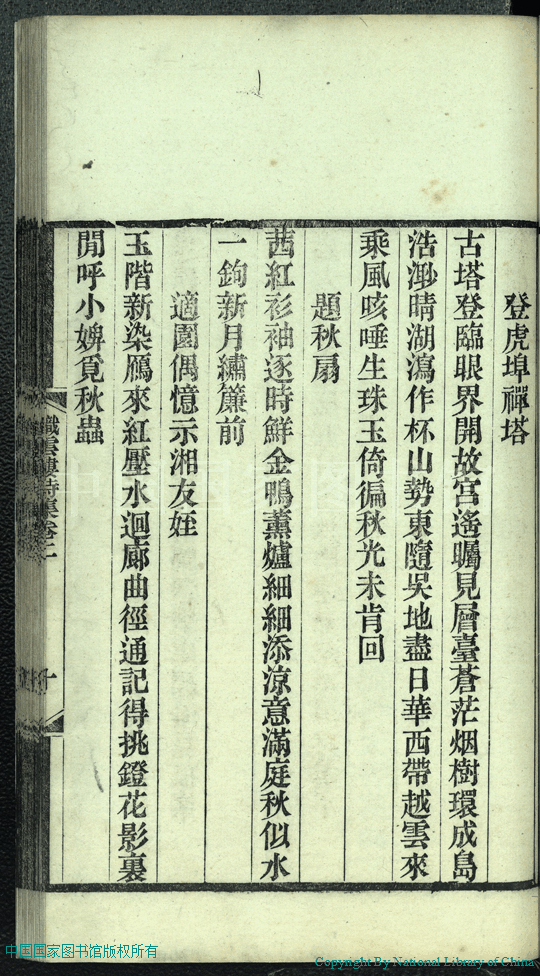 登虎埠禪塔
古塔登臨眼界開故宮遙矚見層臺蒼茫烟樹環成島
浩渺晴湖瀉作杯山勢東隨吳地盡日華西帶越雲來
乘風咳唾生珠玉倚徧秋光未肯回
題秋扇
茜紅衫袖逐時鮮金鴨薰爐細細添涼意滿庭秋似水
一鉤新月繡簾前
適園偶憶示湘友姪
玉階新染鴈來紅壓水迴廊曲徑通記得挑鐙花影裏
閒呼小婢覓秋蟲
織雲樓詩集卷二
十
中国国家图书馆版权所有
Copyright By National Library of China